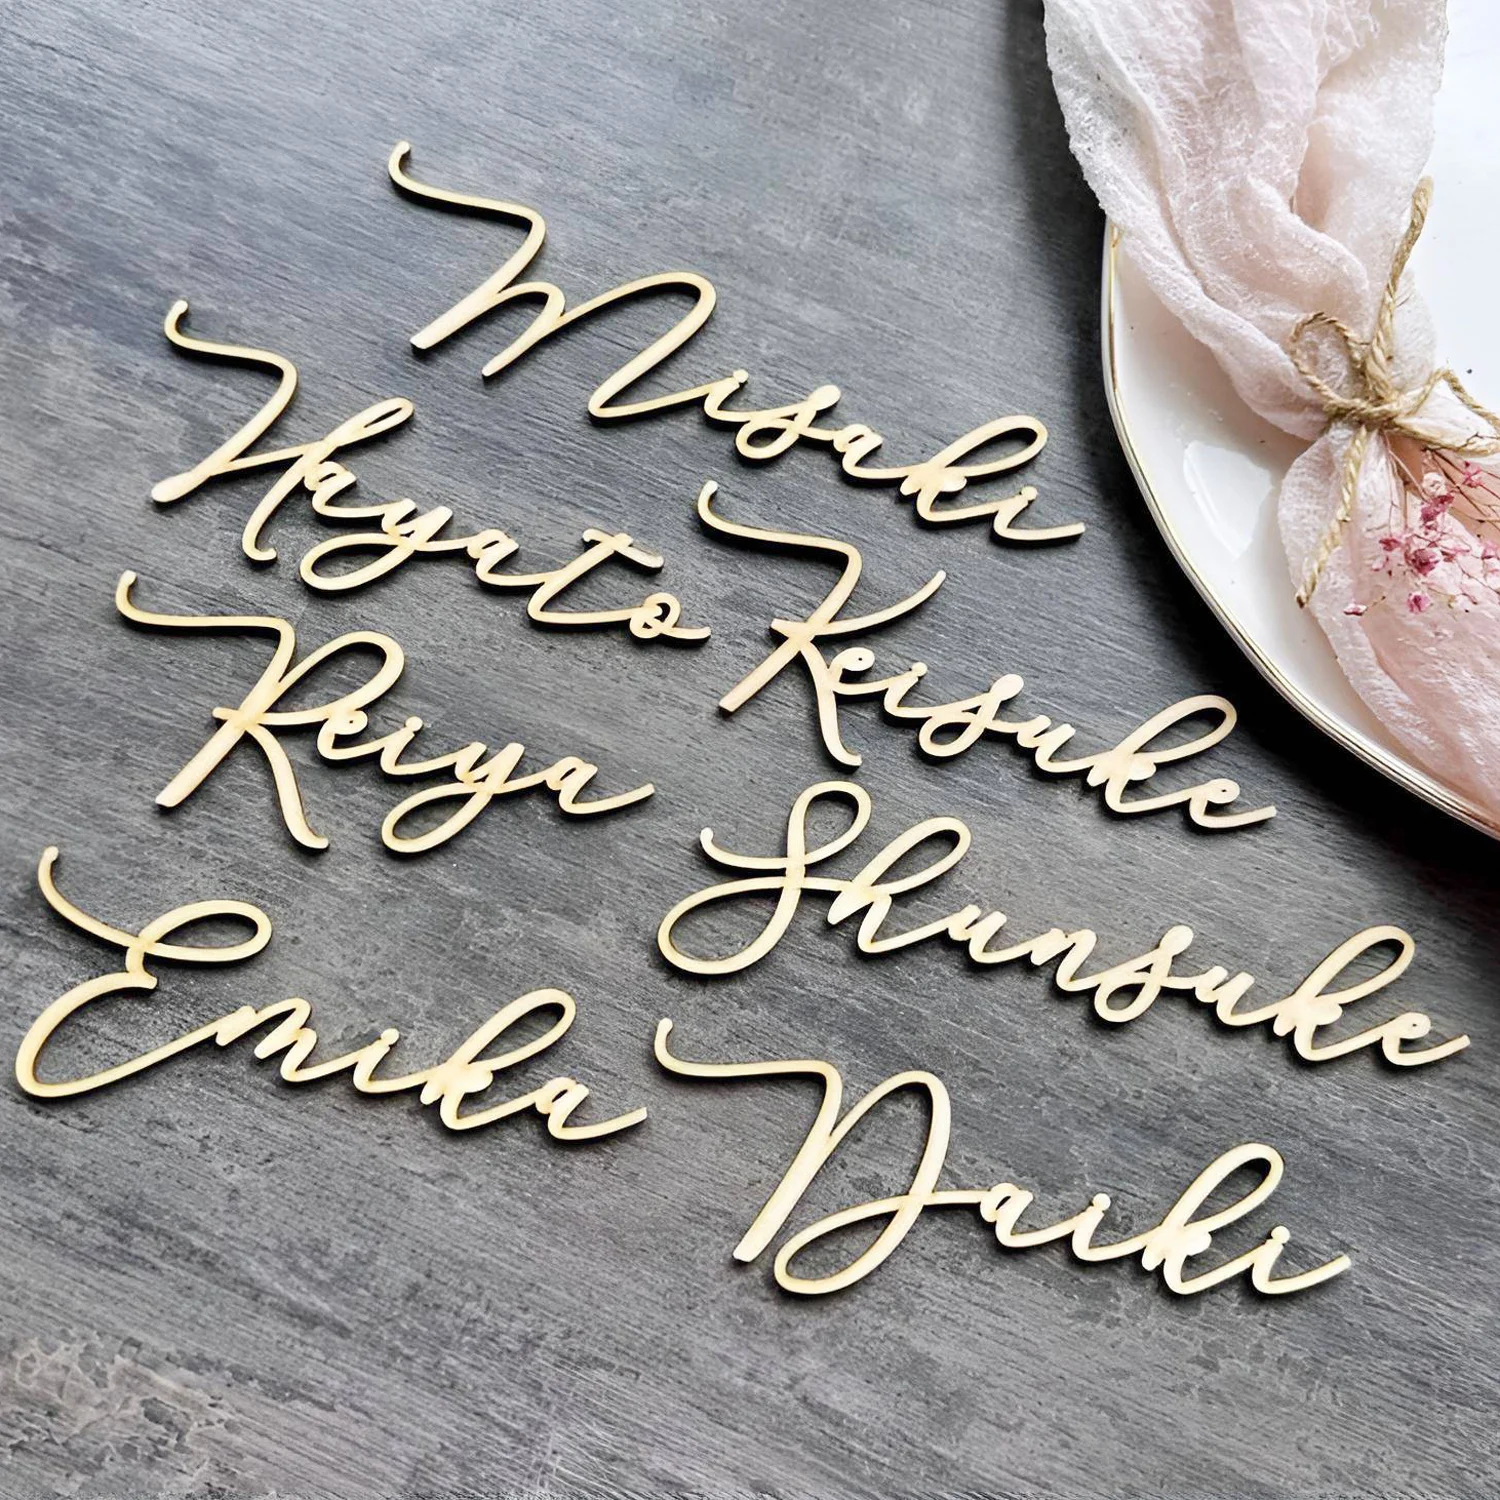 Misaki
Hayato
Keisuke
Reiya
Shunsuke
Emika
Daiki